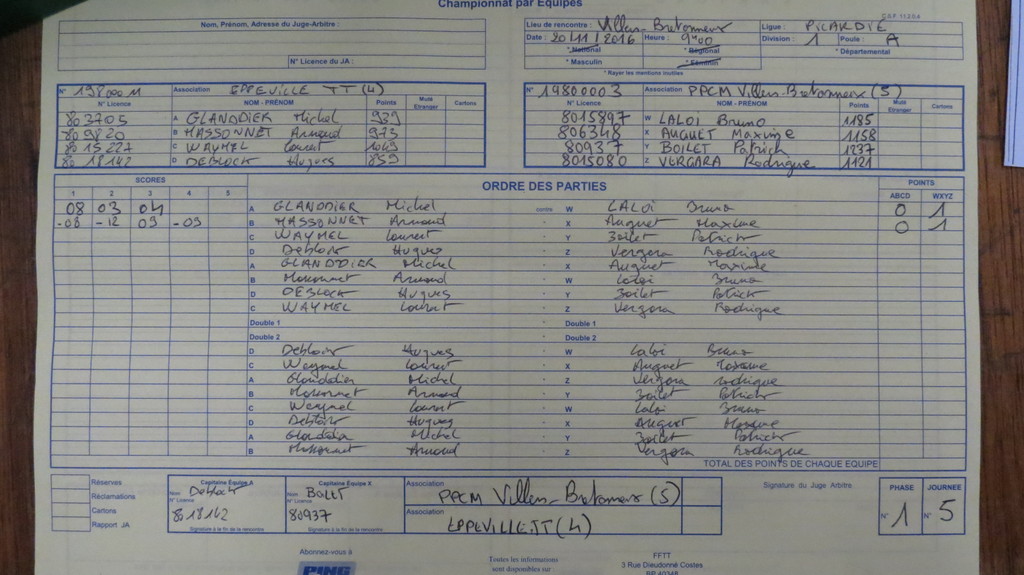 Championnat par Equipes
C.S.F. 11.2.5.4
Nom, Prénom, Adresse du Juge-Arbitre :
N° Licence du JA :
Lieu de rencontre : Villers-Bretonneux Ligue : PICARDIE
Date : 20/11/2016 Heure : 9h00 Division : 1 Poule : A
* National * Régional * Départemental
* Masculin * Féminin
* Rayer les mentions inutiles
Association EPPEVILLE TT (4)
N° Licence NOM - PRÉNOM Points Muté Etranger Cartons
803705 A GLANDDIER Michel 939
809820 B MASSONNET Arnaud 973
8015227 C WAYMEL Laurent 1049
8018142 D DEBLOCK Hugues 859
N° 19800003 Association PPCM Villers-Bretonneux (5)
N° Licence NOM - PRÉNOM Points Muté Etranger Cartons
8015897 W LALOI Bruno 1185
806348 X AUGUET Maxime 1158
80937 Y BOILET Patrick 1237
8015080 Z VERGARA Rodrigue 1121
SCORES ORDRE DES PARTIES POINTS
1 2 3 4 5 ABCD WXYZ
08 03 04 A GLANDDIER Michel contre W LALOI Bruno 0 1
-08 -12 09 -09 B MASSONNET Arnaud X Auguet Maxime 0 1
C WAYMEL Laurent Y Boilet Patrick
D Deblock Hugues Z Vergara Rodrigue
A GLANDDIER Michel X Auguet Maxime
B Massonnet Arnaud W Laloi Bruno
D DEBLOCK Hugues Y Boilet Patrick
C WAYMEL Laurent Z Vergara Rodrigue
Double 1 Double 1
Double 2 Double 2
D Deblock Hugues W Laloi Bruno
C Waymel Laurent X Auguet Maxime
A Glanddier Michel Z Vergara Rodrigue
B Massonnet Arnaud Y Boilet Patrick
C Waymel Laurent W Laloi Bruno
D Deblock Hugues X Auguet Maxime
A Glanddier Michel Y Boilet Patrick
B Massonnet Arnaud Z Vergara Rodrigue
TOTAL DES POINTS DE CHAQUE EQUIPE
Réserves
Réclamations
Cartons
Rapport JA
Capitaine Equipe A
Nom Deblock
N° Licence
8018142
Signature à la fin de la rencontre
Capitaine Equipe X
Nom Boilet
N° Licence
80937
Signature à la fin de la rencontre
Association
PPCM Villers-Bretonneux (5)
Association
EPPEVILLE TT (4)
Signature du Juge Arbitre
PHASE JOURNEE
N° 1 N° 5
Abonnez-vous à
PING
Toutes les informations
sont disponibles sur
FFTT
3 Rue Dieudonné Costes
BP 40348